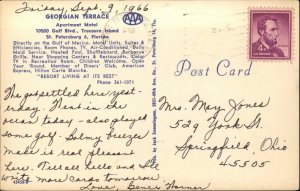 Friday, Sept. 9, 1966
GEORGIAN TERRACE
Apartment Motel
AAA
10500 Gulf Blvd., Treasure Island
St. Petersburg 6, Florida
Directly on the Gulf of Mexico. Motel Units, Suites &
Efficiencies, Room Phones, TV, Air-Conditioned, Daily
Maid Service, Heated Pool, Shuffleboard, Barbecue,
Golfing Near Shopping Centers & Restaurants. Coign
in Equipped Rooms. Children Welcome. Open
Year 'Round. Member of Diners' Club, American
Express, Hilton Carte Blanche.
"RESORT LIVING - AT ITS BEST"
Phone 361-1071
We got settled here yest-
erday. Went in the
ocean today - also played
some golf. Balmy breeze
makes it real pleasant
here. Tell all hello and I'll
write more cards tomorrow.
Love,
Post Card
Mrs. May Jones
529 York St.
Springfield, Ohio
45505